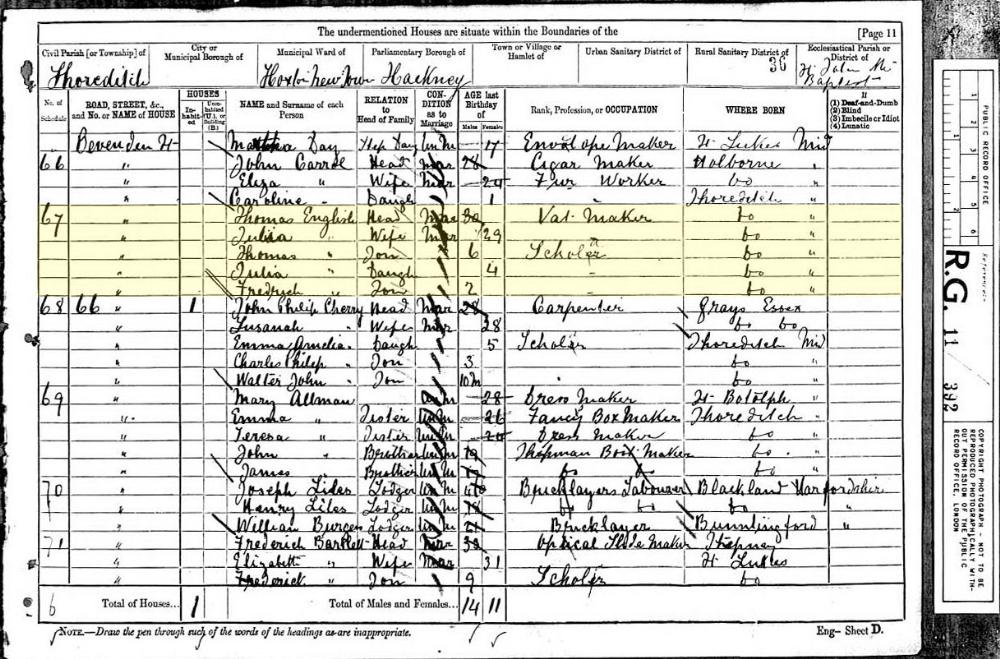 The undermentioned Houses are situate within the Boundaries of the [Page 11
Civil Parish [or Township] of City or Municipal Borough of Municipal Ward of Parliamentary Borough of Town or Village or Hamlet of Urban Sanitary District of Rural Sanitary District of Ecclesiastical Parish or District of
Shoreditch Hoxton New Town Hackney 36 St John the Baptist
No. of Schedule ROAD, STREET, &c., and No. or NAME of HOUSE HOUSES Inhabited Uninhabited (U.), or Building (B.) NAME and Surname of each Person RELATION to Head of Family CONDITION as to Marriage AGE last Birthday of Males Females Rank, Profession, or OCCUPATION WHERE BORN If (1) Deaf-and-Dumb (2) Blind (3) Imbecile or Idiot (4) Lunatic
Martha Day Un M 17 Envelope Maker St Lukes Mid
66 " John Head Mar 28 Cigar Maker Holborne "
" Eliza " Wife Mar 24 Fur Worker Do "
" Caroline " Daugh 1 Shoreditch "
67 " Thomas English Head Mar 30 Vat Maker Do "
" Julia " Wife Mar 29 Do "
" Thomas " Son 6 Scholar Do "
" Julia " Daugh 4 Do "
" Fredrich " Son 2 Do "
68 66 " 1 John Philip Cherry Head Mar 28 Carpenter Grays Essex
" Susanah " Wife Mar 28 Do Do
" Emma Amelia " Daugh 5 Scholar Shoreditch Mid
" Charles Philip " Son 3 Do "
" Walter John " Son 10m Do "
69 " Mary Allman Un M 28 Dress Maker St Botolph "
" Emma " Sister Un M 26 Fancy Box Maker Shoreditch "
" Teresa " Sister Un M 24 Dress Maker Do "
" John " Brother Un M 19 Boot Maker Do "
" James " Brother Un M 17 Do Do Do "
70 " Joseph Liles Lodger Un M Bricklayers Labourer
" Henry Liles Lodger Un M Do Do Do
" William Lodger Un M 21 Bricklayer "
71 " Frederick Bartlett Head Mar Optical Maker Stepney
" Elizabeth " Wife Mar 31 St Lukes
" Frederick " Son 9 Scholar Do
6 Total of Houses... 1 Total of Males and Females... 14 11
NOTE.—Draw the pen through such of the words of the headings as are inappropriate. Eng— Sheet D.
PUBLIC RECORD OFFICE
Reference:-
R.G. 11 / 392
COPYRIGHT PHOTOGRAPH - NOT TO BE REPRODUCED PHOTOGRAPHICALLY WITHOUT PERMISSION OF THE PUBLIC RECORD OFFICE, LONDON